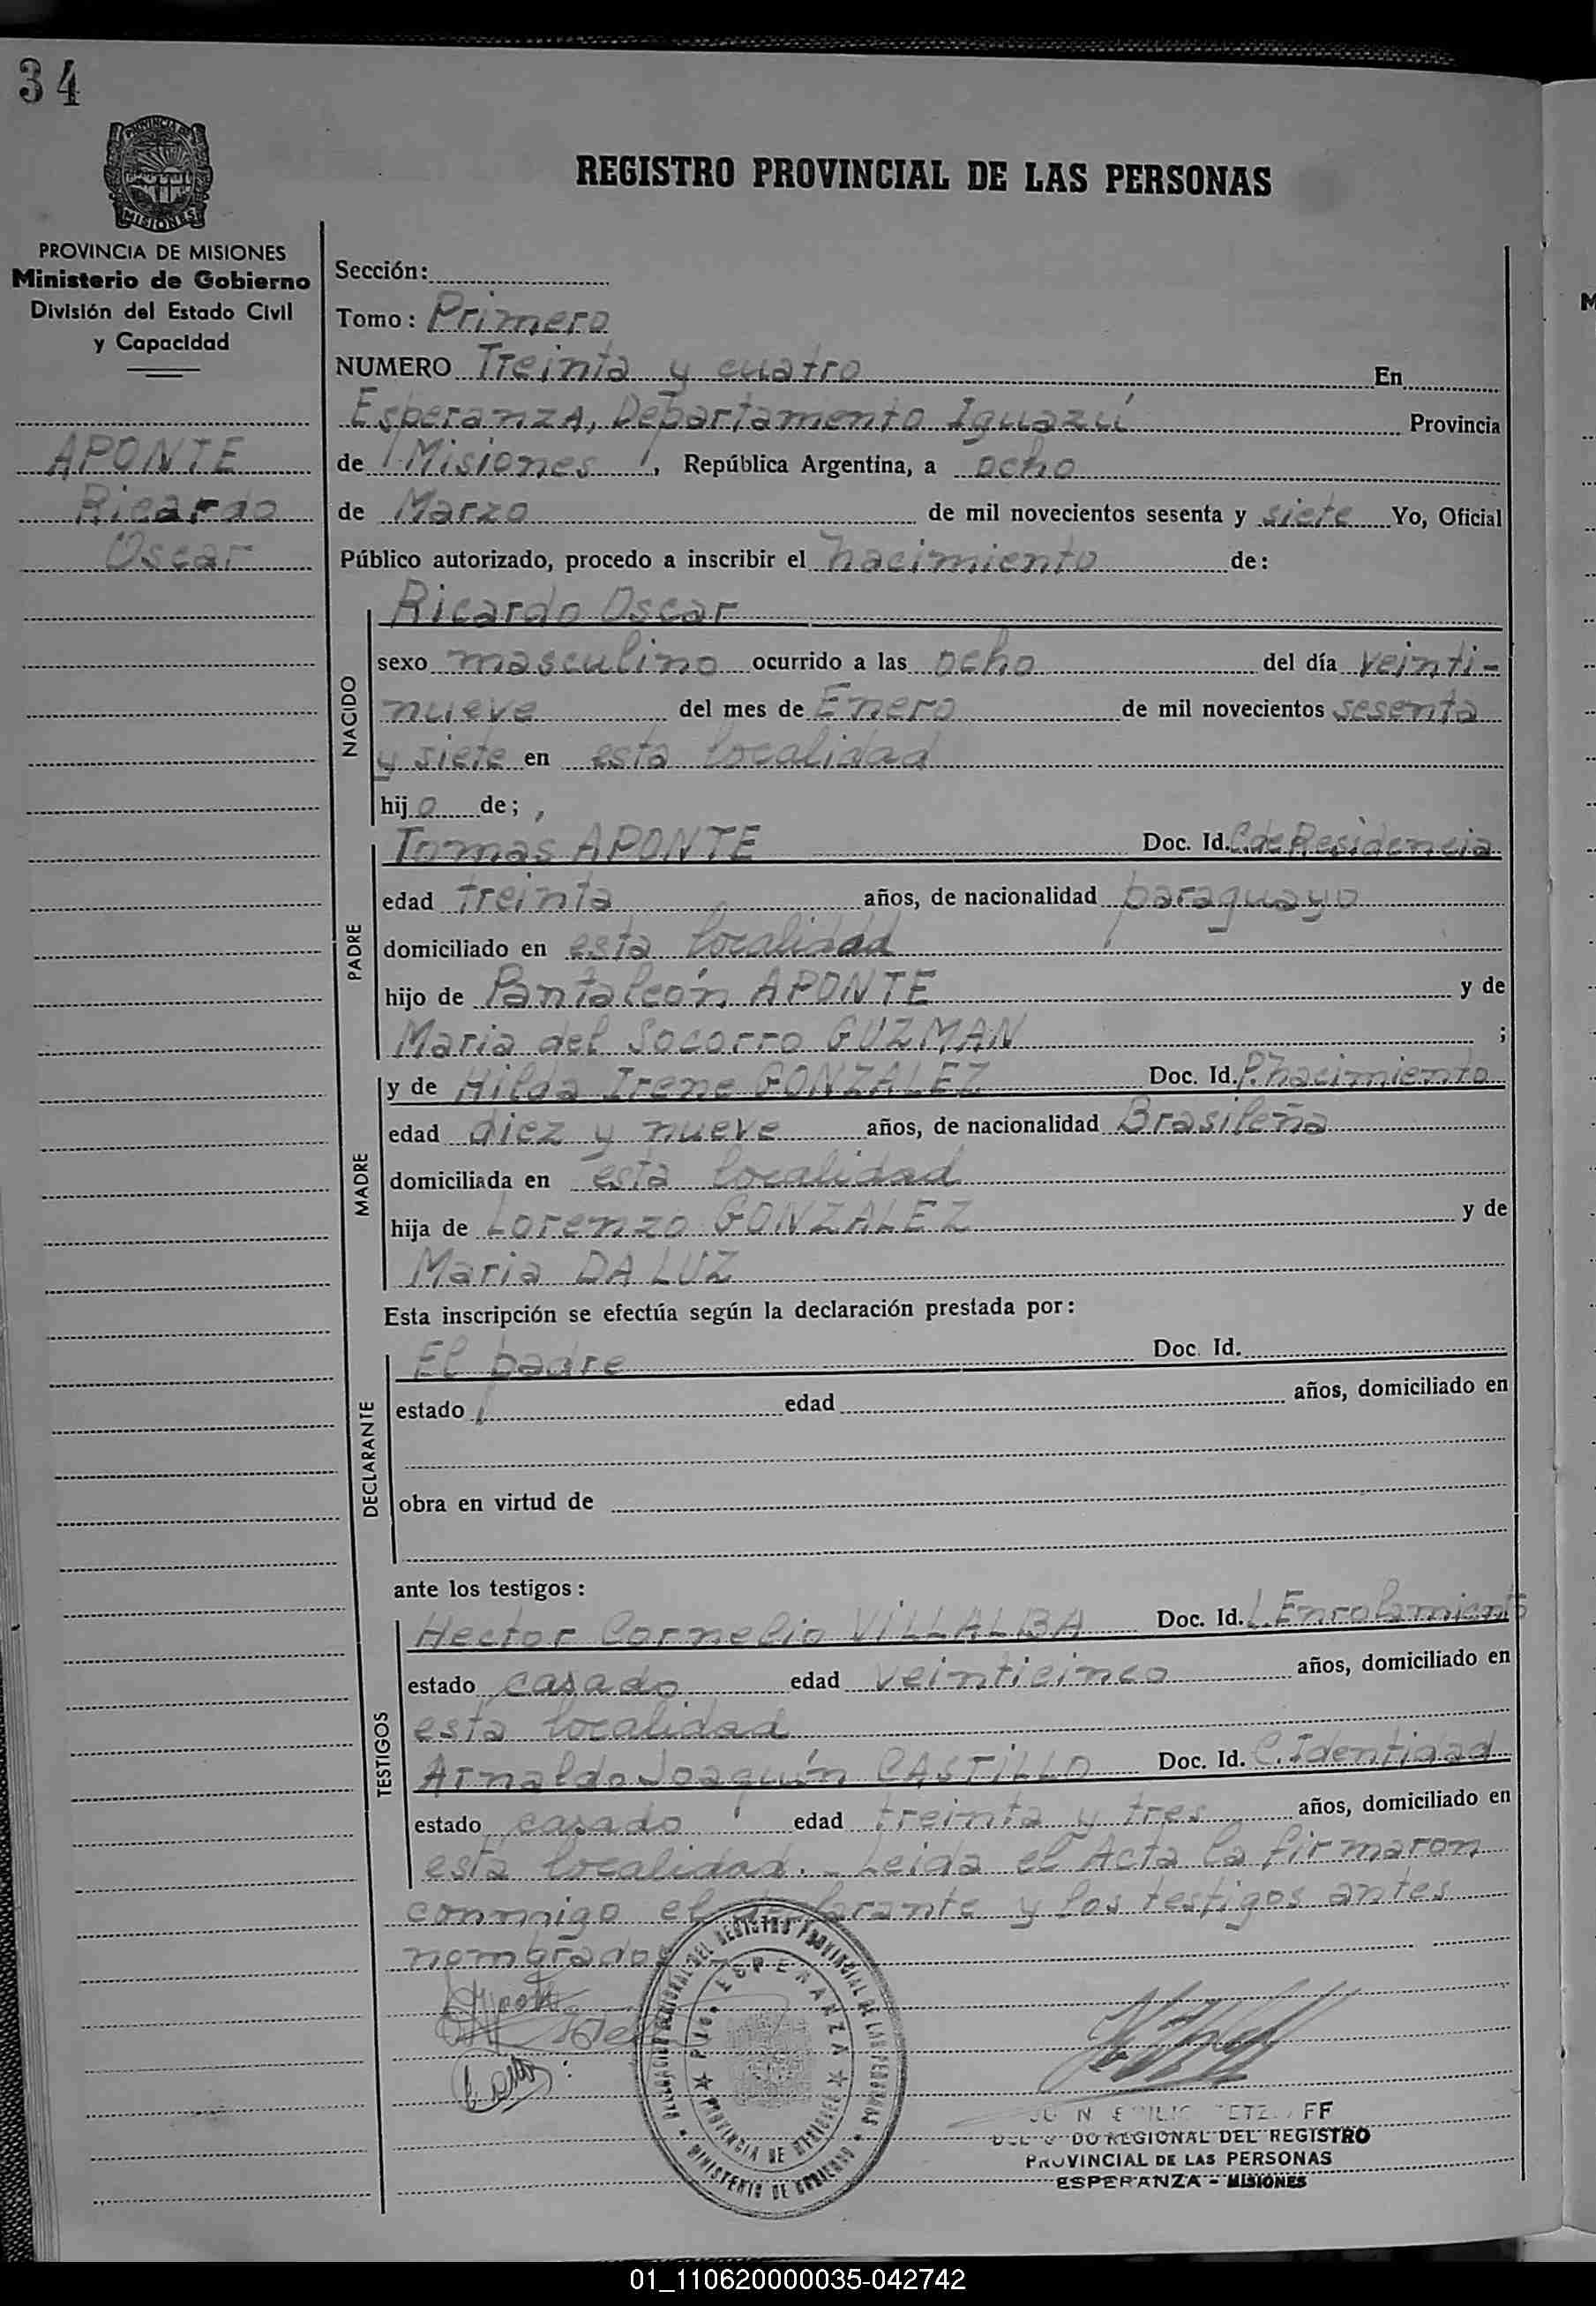 34
PROVINCIA DE
MISIONES
REGISTRO PROVINCIAL DE LAS PERSONAS
PROVINCIA DE MISIONES
Ministerio de Gobierno
División del Estado Civil
y Capacidad
APONTE
Ricardo
Oscar
Sección:
Tomo: Primero
NUMERO Treinta y cuatro En
Esperanza, Departamento Iguazú Provincia
de Misiones, República Argentina, a ocho
de Marzo de mil novecientos sesenta y siete Yo, Oficial
Público autorizado, procedo a inscribir el nacimiento de:
NACIDO
Ricardo Oscar
sexo masculino ocurrido a las ocho del día veinti-
nueve del mes de Enero de mil novecientos sesenta
y siete en esta localidad
hijo de;
PADRE
Tomas APONTE Doc. Id. C. de Residencia
edad treinta años, de nacionalidad paraguayo
domiciliado en esta localidad
hijo de Pantaleón APONTE y de
Maria del Socorro GUZMAN ;
MADRE
y de Hilda Irene GONZALEZ Doc. Id. P. nacimiento
edad diez y nueve años, de nacionalidad Brasileña
domiciliada en esta localidad
hija de Lorenzo GONZALEZ y de
Maria DA LUZ
Esta inscripción se efectúa según la declaración prestada por:
DECLARANTE
El padre Doc. Id.
estado edad años, domiciliado en
obra en virtud de
ante los testigos:
TESTIGOS
Hector Cornelio VILLALBA Doc. Id. L. Enrolamiento
estado casado edad veinticinco años, domiciliado en
esta localidad
Arnaldo Joaquín CASTILLO Doc. Id. C. Identidad
estado casado edad treinta y tres años, domiciliado en
esta localidad. - Leida el Acta la firmaron
conmigo el declarante y los testigos antes
nombrados
DEL REGISTRO PROVINCIAL DE LAS PERSONAS
MINISTERIO DE GOBIERNO
Pto. ESPERANZA
PROVINCIA DE MISIONES
REGIONAL DEL REGISTRO
PROVINCIAL DE LAS PERSONAS
ESPERANZA - MISIONES
01_110620000035-042742